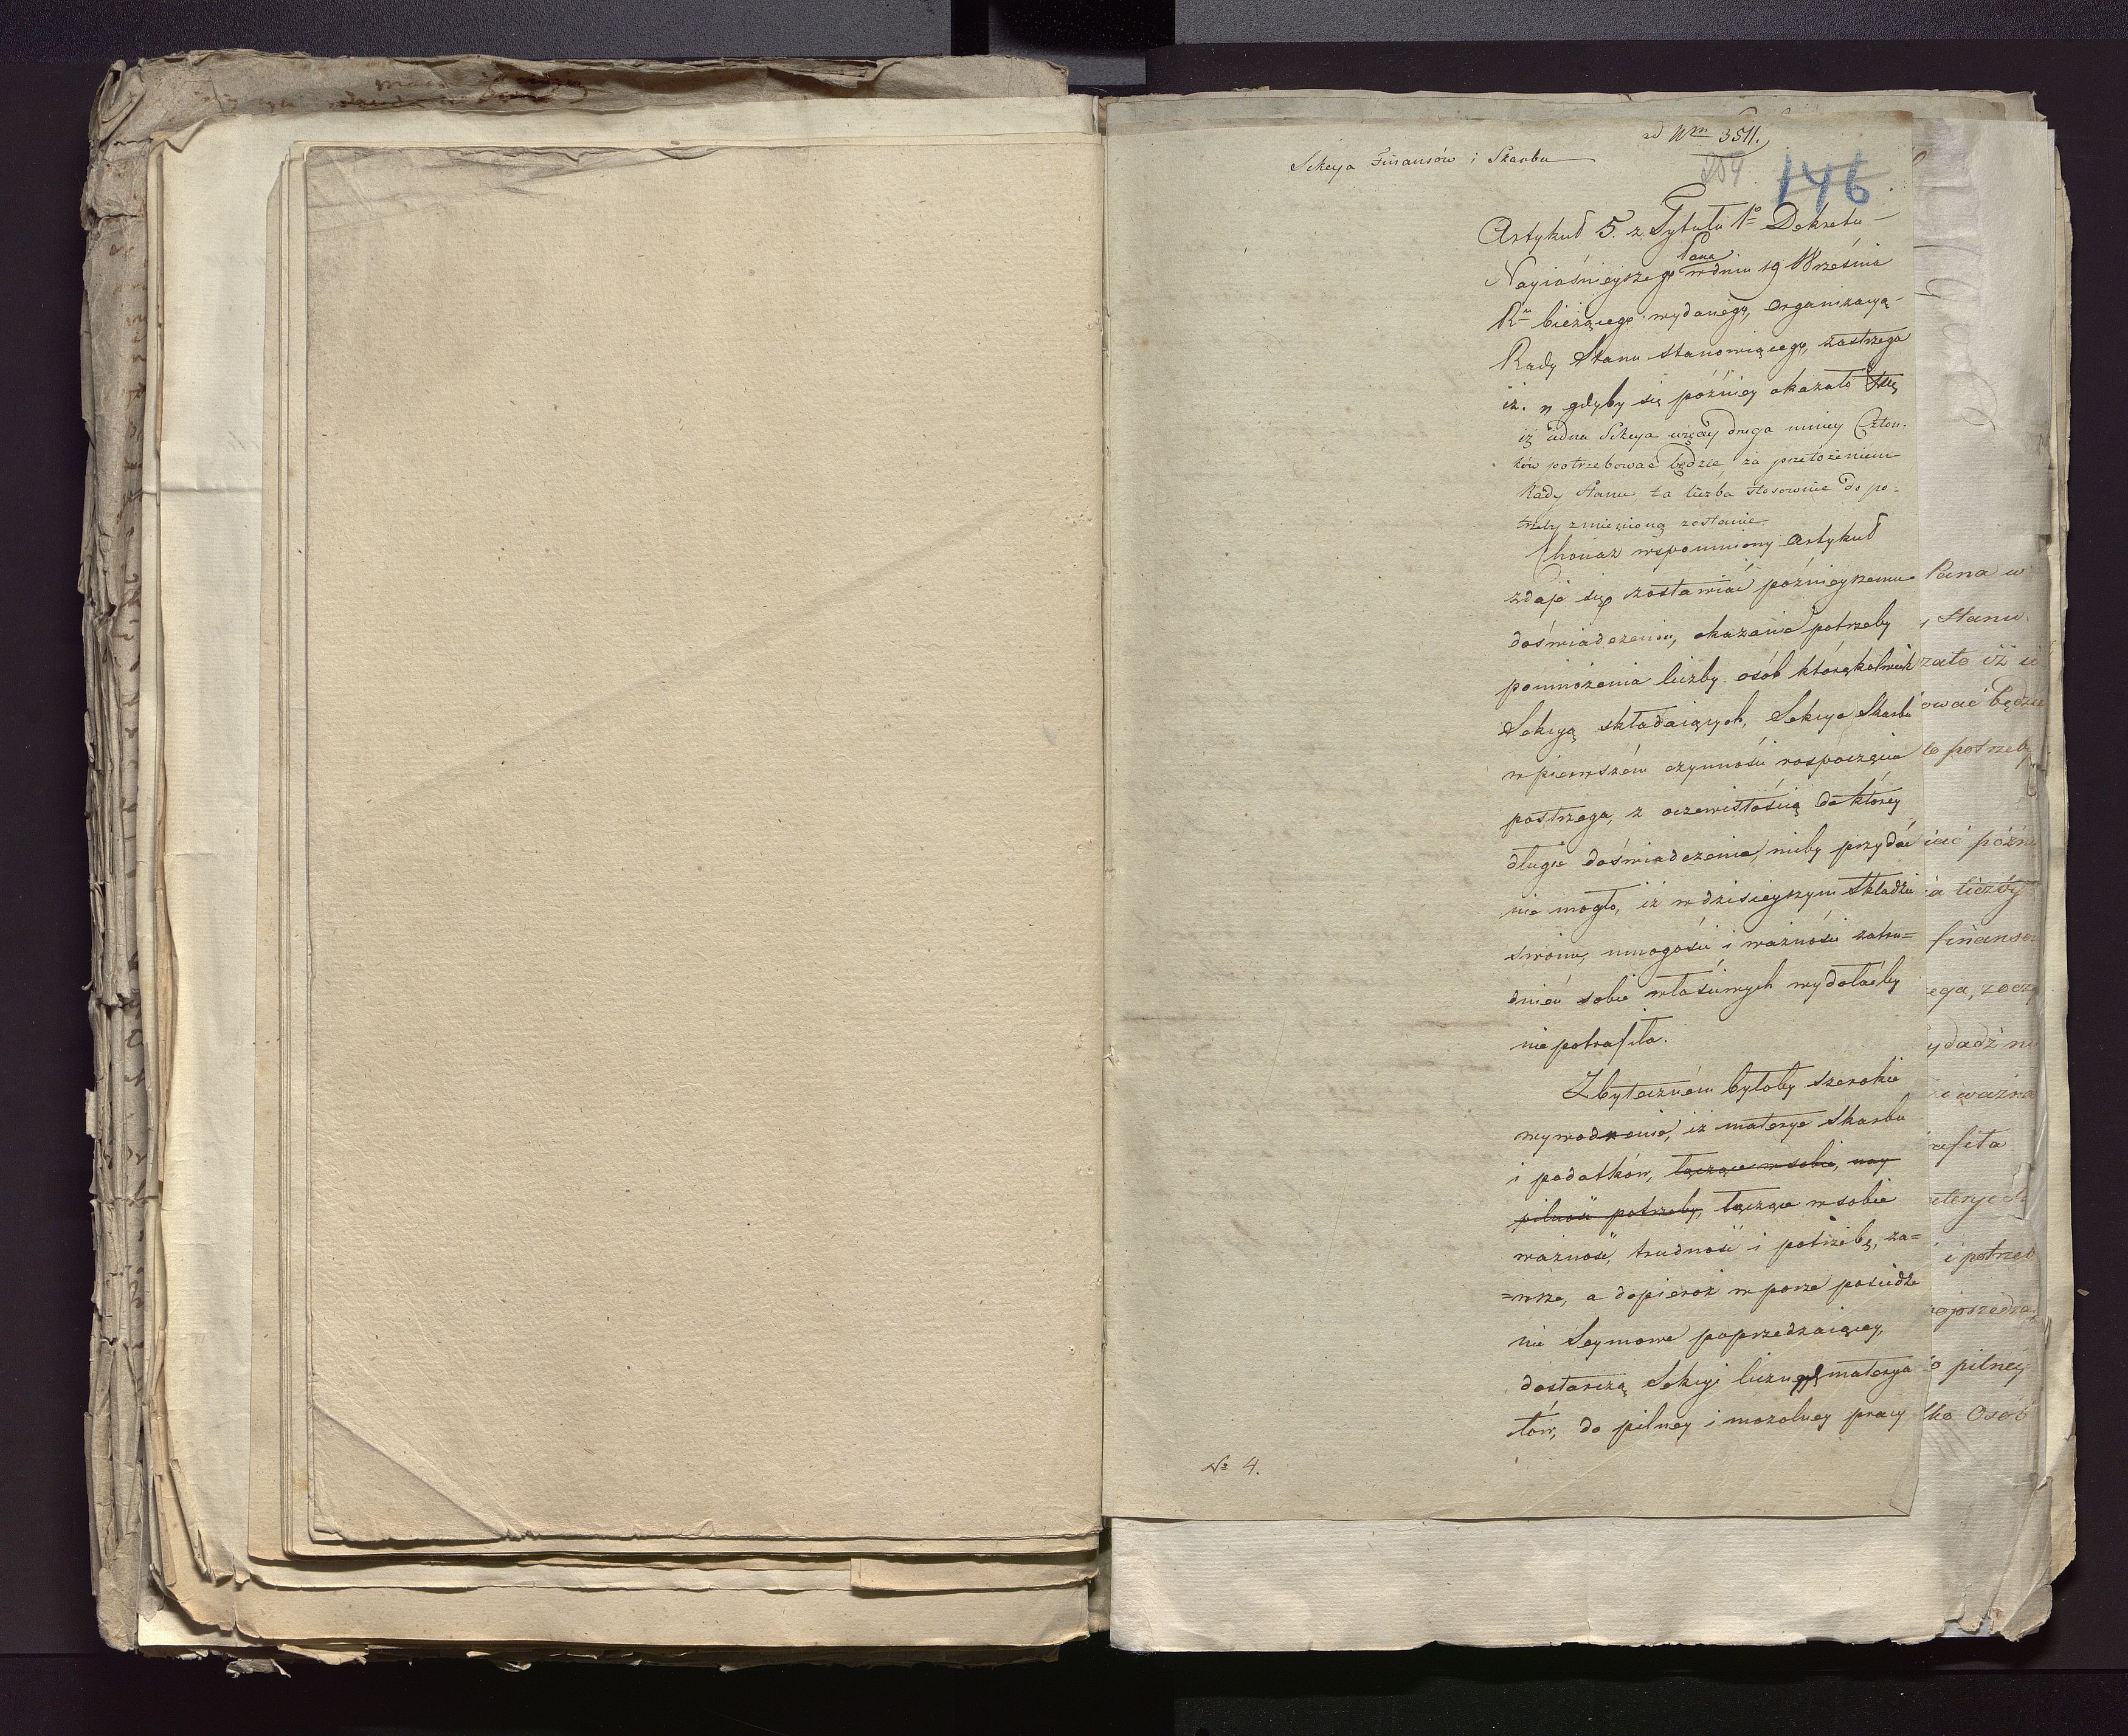 ad Nrm 3511.
Sekcya Finansów i Skarbu
259
146
Artykuł 5. z Tytułu 1o Dekretu
Nayiaśnieyszego Pana w dniu 19 Września
Ru bieżącego wydanego, organizacyą
Rady Stanu stanowiącego, zastrzega
iż „ gdyby się późniey okazało
iż iedna Sekcya więcey druga mniey Człon-
ków potrzebować będzie, za przełożeniem
Rady Stanu ta liczba stosownie do po-
trzeby zmienioną zostanie.
Chociaż wspomniony Artykuł
zdaje się zostawiać poźnieyszemu
doświadczeniu, okazanie potrzeby
pomnożenia liczby osób którąkolwiek
Sekcyą składaiących, Sekcya Skarbu
w pierwszém czynności rospoczęciu
postrzega, z oczewistością do którey
długie doświadczenie, nicby przydać
nie mogło, iż w dzisieyszym składzie
swoim, mnogości i ważności zatru=
dnień sobie właściwych wydołaćby
nie potrafiła.
Zbyteczném byłoby szerokie
wywodzenie, iż materye Skarbu
i podatków, łączące w sobie, nay
pilność potrzeby, łączące w sobie
ważność, trudność i potrzebę, za=
=wsze, a dopieroż w porze posiedze
nie Seymowe poprzedzaiącey,
dostarczą Sekcyi licznych materya
łów, do pilney i mozolney pracy
No 4.
Pana w
Stanu
zało iż ie
ować będzie
potrzeby
iać późni
ia liczby
finanso
ega, z ocz
ydadź ni
i ważno
rafiła
i potrzeb
oprzedza
pilney
lko Osób